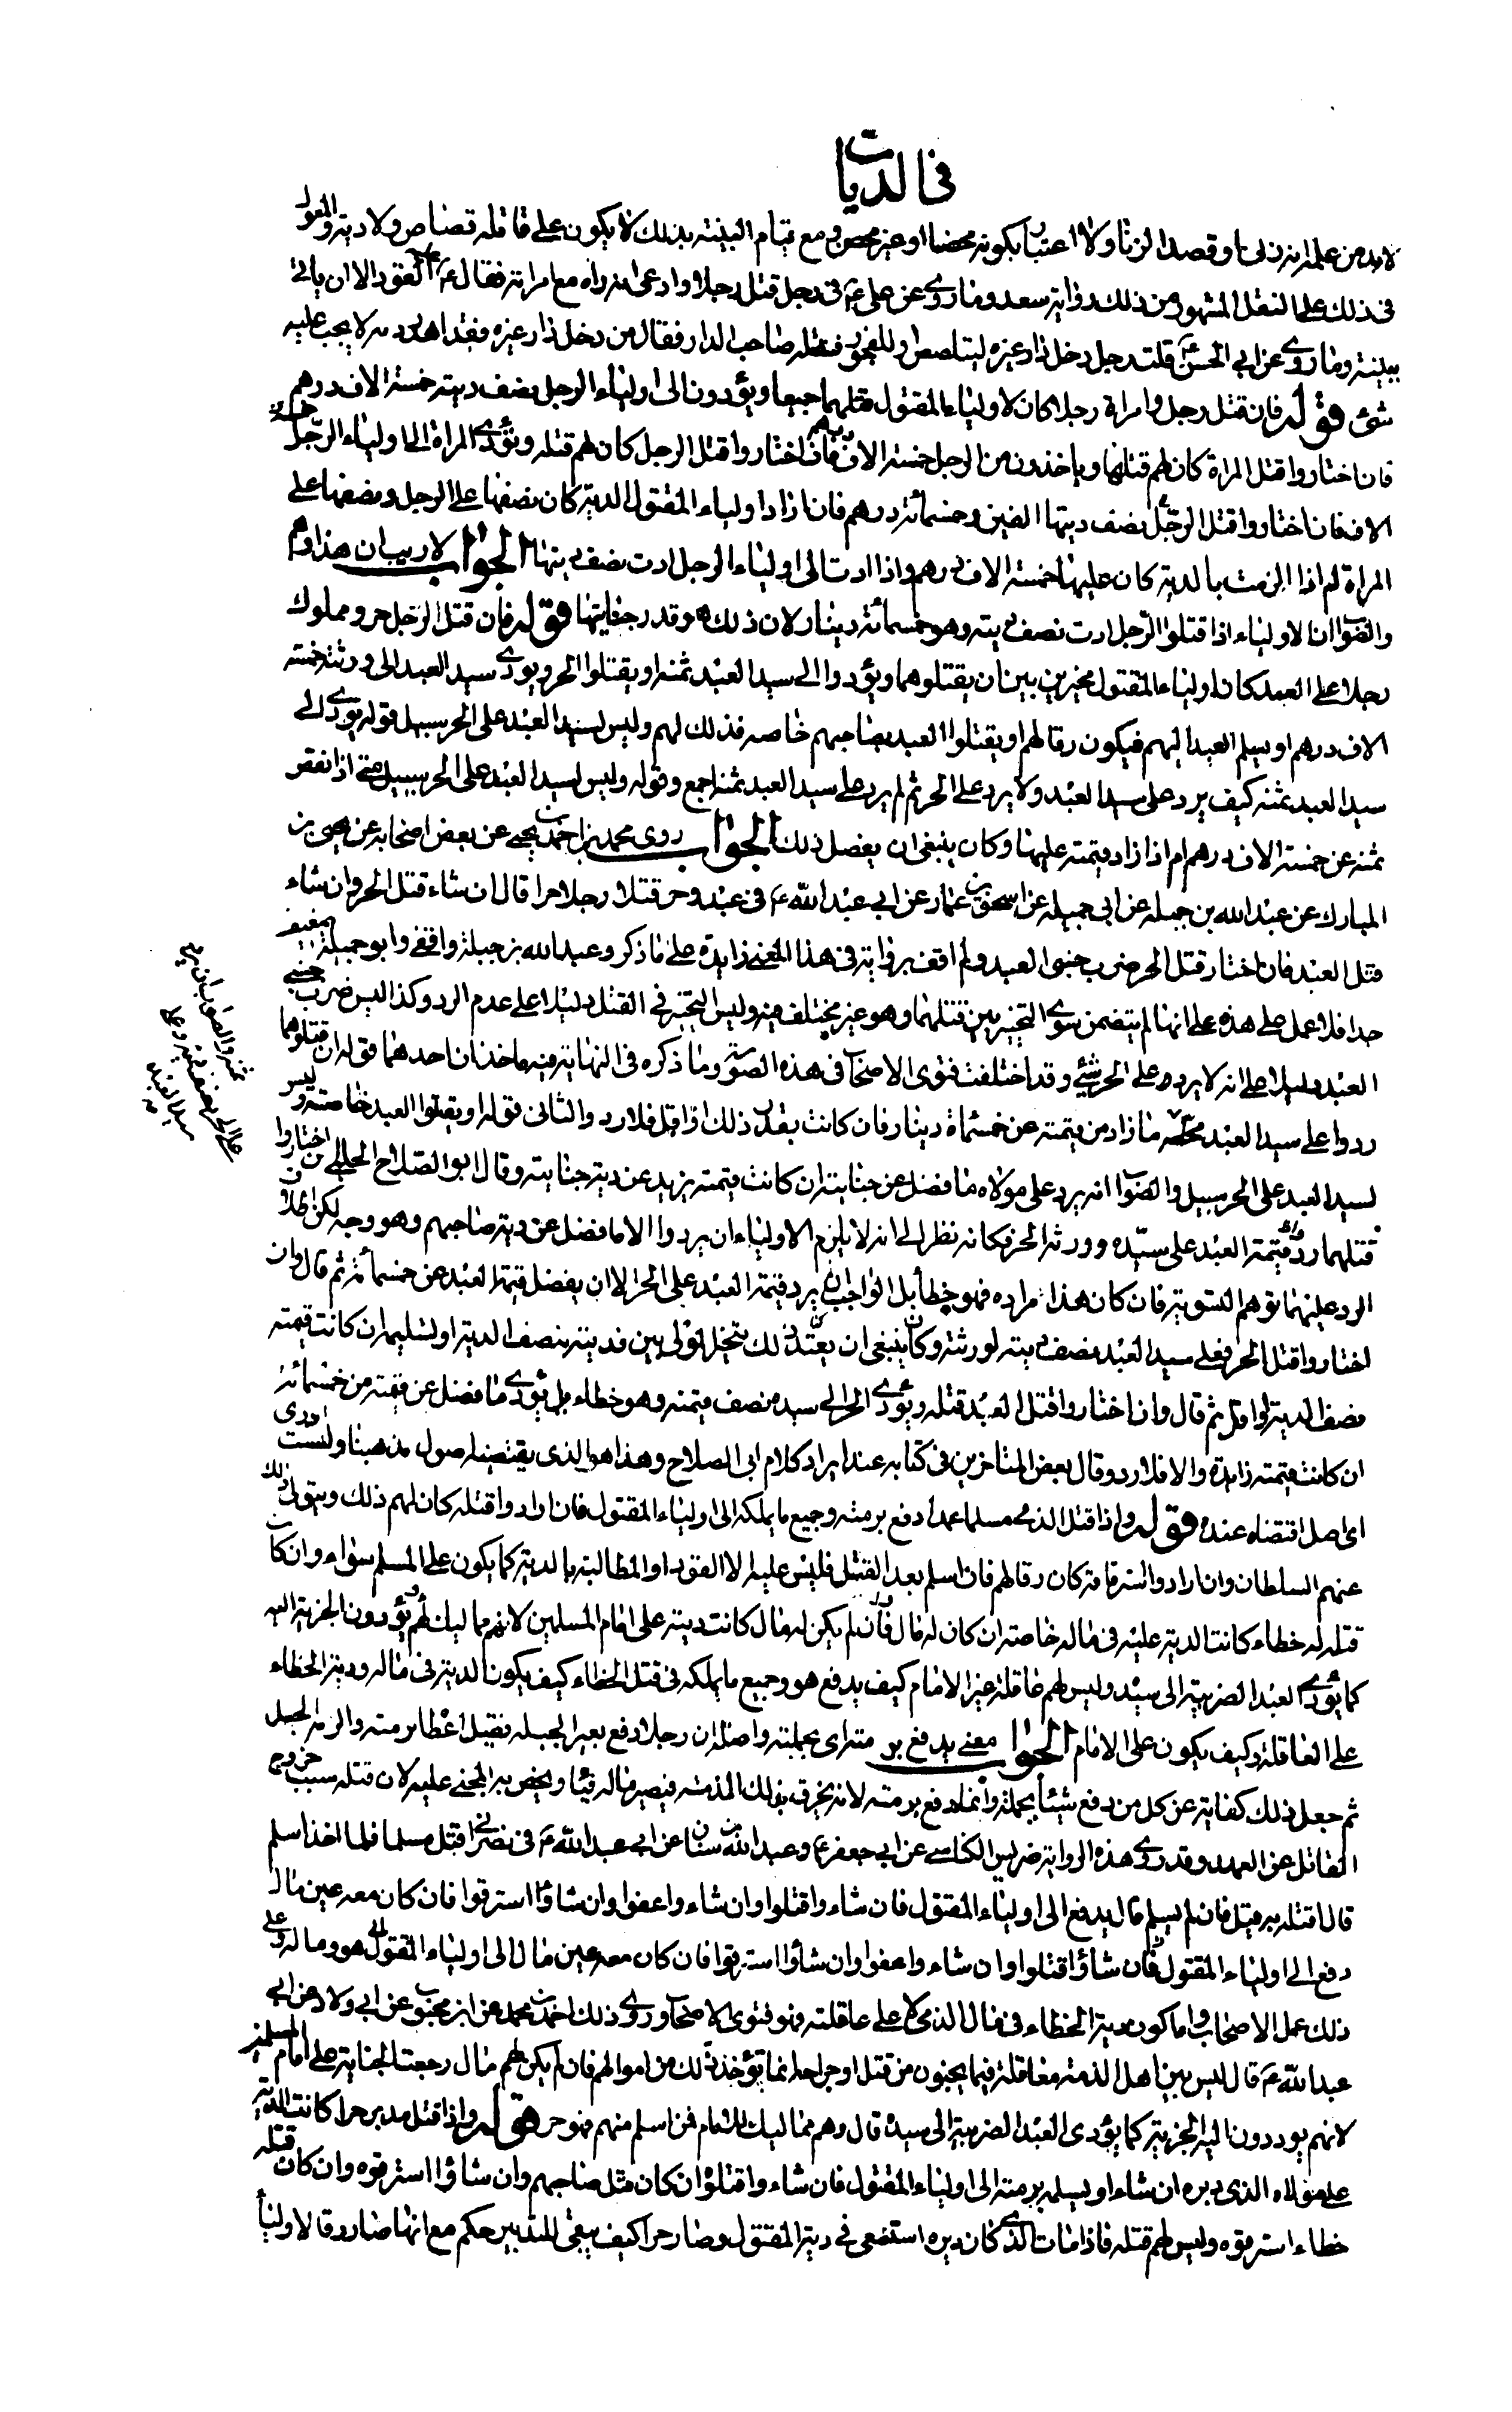 في الديات
لابد من علمه انه زنى او قصد الزنا ولا اعتبار بكونه محصنا او غير محصن ومع قيام البينة بذلك لا يكون على قاتله قصاص ولا دية والمعول
في ذلك على النقل المشهور من ذلك رواية سعد وما روي عن علي ع في رجل قتل رجلا وادعى انه راه مع امراته فقال ع عليه القود الا ان ياتي
ببينة وما روي عن ابي الحسن ع قلت رجل دخل دار غيره ليتلصص او للفجور فقتله صاحب الدار فقال من دخل دار غيره فقد اهدر دمه لا يجب عليه
شئ قوله فان قتل رجل وامراة رجلا كان لاولياء المقتول قتلهما جميعا ويؤدون الى اولياء الرجل نصف ديته خمسة الاف درهم
فان اختاروا قتل المراة كان لهم قتلها وياخذون من الرجل خمسة الاف درهم فان اختاروا قتل الرجل كان لهم قتله وتؤدي المراة الى اولياء الرجل خمسة
الاف فان اختاروا قتل الرجل نصف ديتها الفين وخمسمائة درهم فان ارادا اولياء المقتول الدية كان نصفها على الرجل ونصفها على
المراة لم اذا الزمت بالدية كان عليها خمسة الاف درهم واذا ادت الى اولياء الرجل ادت نصف ديتها الجواب لا ريب ان هذا وهم
والصواب ان الاولياء اذا قتلوا الرجل ادت نصف ديته وهو خمسمائة دينار لان ذلك هو قدر جنايتها قوله فان قتل الرجل حر ومملوك
رجلا على العمد كان اولياء المقتول مخيرين بين ان يقتلوهما ويؤدوا الى سيد العبد ثمنه او يقتلوا الحر ويؤدي سيد العبد الى ورثته خمسة
الاف درهم او يسلم العبد اليهم فيكون رقا لهم او يقتلوا العبد بصاحبهم خاصة فذلك لهم وليس لسيد العبد على الحر سبيل قوله يؤدي الى
سيد العبد ثمنه كيف يرد على سيد العبد ولا يرد على الحر ثم لم يرد على سيد العبد ثمنه اجمع وقوله وليس لسيد العبد على الحر سبيل متى اذا نقص
ثمنه عن خمسة الاف درهم ام اذا زاد قيمته عليها وكان ينبغي ان يفصل ذلك الجواب روى محمد بن احمد بن يحيى عن بعض اصحابه عن يحيى بن
المبارك عن عبد الله بن جبلة عن ابي جميلة عن اسحق بن عمار عن ابي عبد الله ع في عبد وحر قتلا رجلا حرا قال ان شاء قتل الحر وان شاء
قتل العبد فان اختار قتل الحر ضرب جنبي العبد ولم اقف برواية في هذا المعنى زايدة على ما ذكر وعبد الله بن جبلة واقفي وابو جميلة ضعيف
جدا فلا عمل على هذه على انها لم يتضمن سوى التخيير بين قتلهما وهو غير مختلف فيه وليس التخيير في القتل دليلا على عدم الرد وكذا ليس ضرب جنبي
العبد دليلا على انه لا يرد على الحر شئ وقد اختلفت فتوى الاصحاب في هذه الصورة وما ذكره في النهاية فيه ماخذان احدهما قوله ان قتلوهما
ردوا على سيد العبد ما زاد من قيمته عن خمسمائة دينار فان كانت بقدر ذلك او اقل فلا رد والثاني قوله او يقتلوا العبد خاصة وليس
لسيد العبد على الحر سبيل والصواب انه يرد على مولاه ما فضل عن جنايته ان كانت قيمته يزيد عن دية جنايته وقال ابو الصلاح الحلبي ان اختاروا
قتلهما رد قيمة العبد على سيده وورثة الحر فكانه نظر الى انه لا يلزم الاولياء ان يردوا الا ما فضل عن دية صاحبهم وهو وجه لكن اطلاق
الرد عليهما توهم التسوية فان كان هذا مراده فهو خطأ بل الواجب ان يرد قيمة العبد على الحر الا ان يفضل قيمة العبد عن خمسمائة ثم قال وان
اختاروا قتل الحر فعلى سيد العبد نصف ديته لورثته وكان ينبغي ان يعتد ذلك بتخير المولى بين فديته بنصف الدية او تسليمه ان كانت قيمته
نصف الدية او اقل ثم قال وان اختاروا قتل العبد قتلوه ويؤدي الحر الى سيده نصف قيمته وهو خطاء بل يؤدي ما فضل عن قيمته من خمسمائة
ان كانت قيمته زايدة والا فلا رد وقال بعض المتاخرين في كتابه عند ايراد كلام ابي الصلاح وهذا هو الذي يقتضيه اصول مذهبنا ولست ادري
اي اصل اقتضاه عنده قوله واذا قتل الذمي مسلما عمدا دفع برمته وجميع ما يملكه الى اولياء المقتول فان ارادوا قتله كان لهم ذلك ويتولى ذلك
عنهم السلطان وان ارادوا استرقاقه كان رقا لهم فان اسلم بعد القتل فليس عليه الا القود او المطالبة بالدية كما يكون على المسلم سواء وان كان
قتله له خطاء كانت الدية عليه في ماله خاصة ان كان له مال فان لم يكن له مال كانت ديته على امام المسلمين لانهم مماليك له يؤدون الجزية اليه
كما يؤدي العبد الضريبة الى سيده وليس لهم عاقلة غير الامام كيف يدفع هو وجميع ما يملكه في قتل الخطاء كيف يكون الدية في ماله ودية الخطاء
على العاقلة وكيف يكون على الامام الجواب معنى يدفع برمته اي بجملته واصله ان رجلا دفع بعيرا بحبله فقيل اعطاه برمته والرمة الحبل
ثم جعل ذلك كفاية عن كل من دفع شيئا بجملته وانما دفع برمته لانه يخرق بذلك الذمة فيصير ماله فيئا ويختص به المجني عليه لان قتله سبب خروج
القاتل عن العهد وقد روى هذه الرواية ضريس الكناسي عن ابي جعفر ع وعبد الله بن سنان عن ابي عبد الله ع في نصراني قتل مسلما فلما اخذ اسلم
قال اقتله به قيل فان لم يسلم قال يدفع الى اولياء المقتول فان شاءوا قتلوا وان شاءوا عفوا وان شاؤا استرقوا فان كان معه عين مال
دفع الى اولياء المقتول فان شاؤا قتلوا وان شاءوا عفوا وان شاؤا استرقوا فان كان معه عين مال الى اولياء المقتول هو وماله وعلى
ذلك عمل الاصحاب واما كون دية الخطاء في مال الذمي لا على عاقلته فهو فتوى الاصحاب وروى ذلك احمد بن محمد عن ابن محبوب عن ابي ولاد عن ابي
عبد الله ع قال ليس بين اهل الذمة معاقلة فيما يجنون من قتل او جراحة انما تؤخذ ذلك من اموالهم فان لم يكن لهم مال رجعت الجناية على امام المسلمين
لانهم يؤدون اليه الجزية كما يؤدي العبد الضريبة الى سيده قال وهم مماليك للامام فمن اسلم منهم فهو حر قوله واذا قتل مدبر حرا كانت الدية
على مولاه الذي دبره ان شاء او يسلمه برمته الى اولياء المقتول فان شاءوا قتلوه ان كان قتل صاحبهم وان شاؤا استرقوه وان كان قتله
خطاء استرقوه وليس لهم قتله فاذا مات الذي كان دبره استسعى في دية المقتول وصار حرا كيف يبقى للتدبير حكم مع انها صار رقا لاولياء
ثمنه والصواب ان يرد
على الحر نصف ديته وعلى
سيد العبد